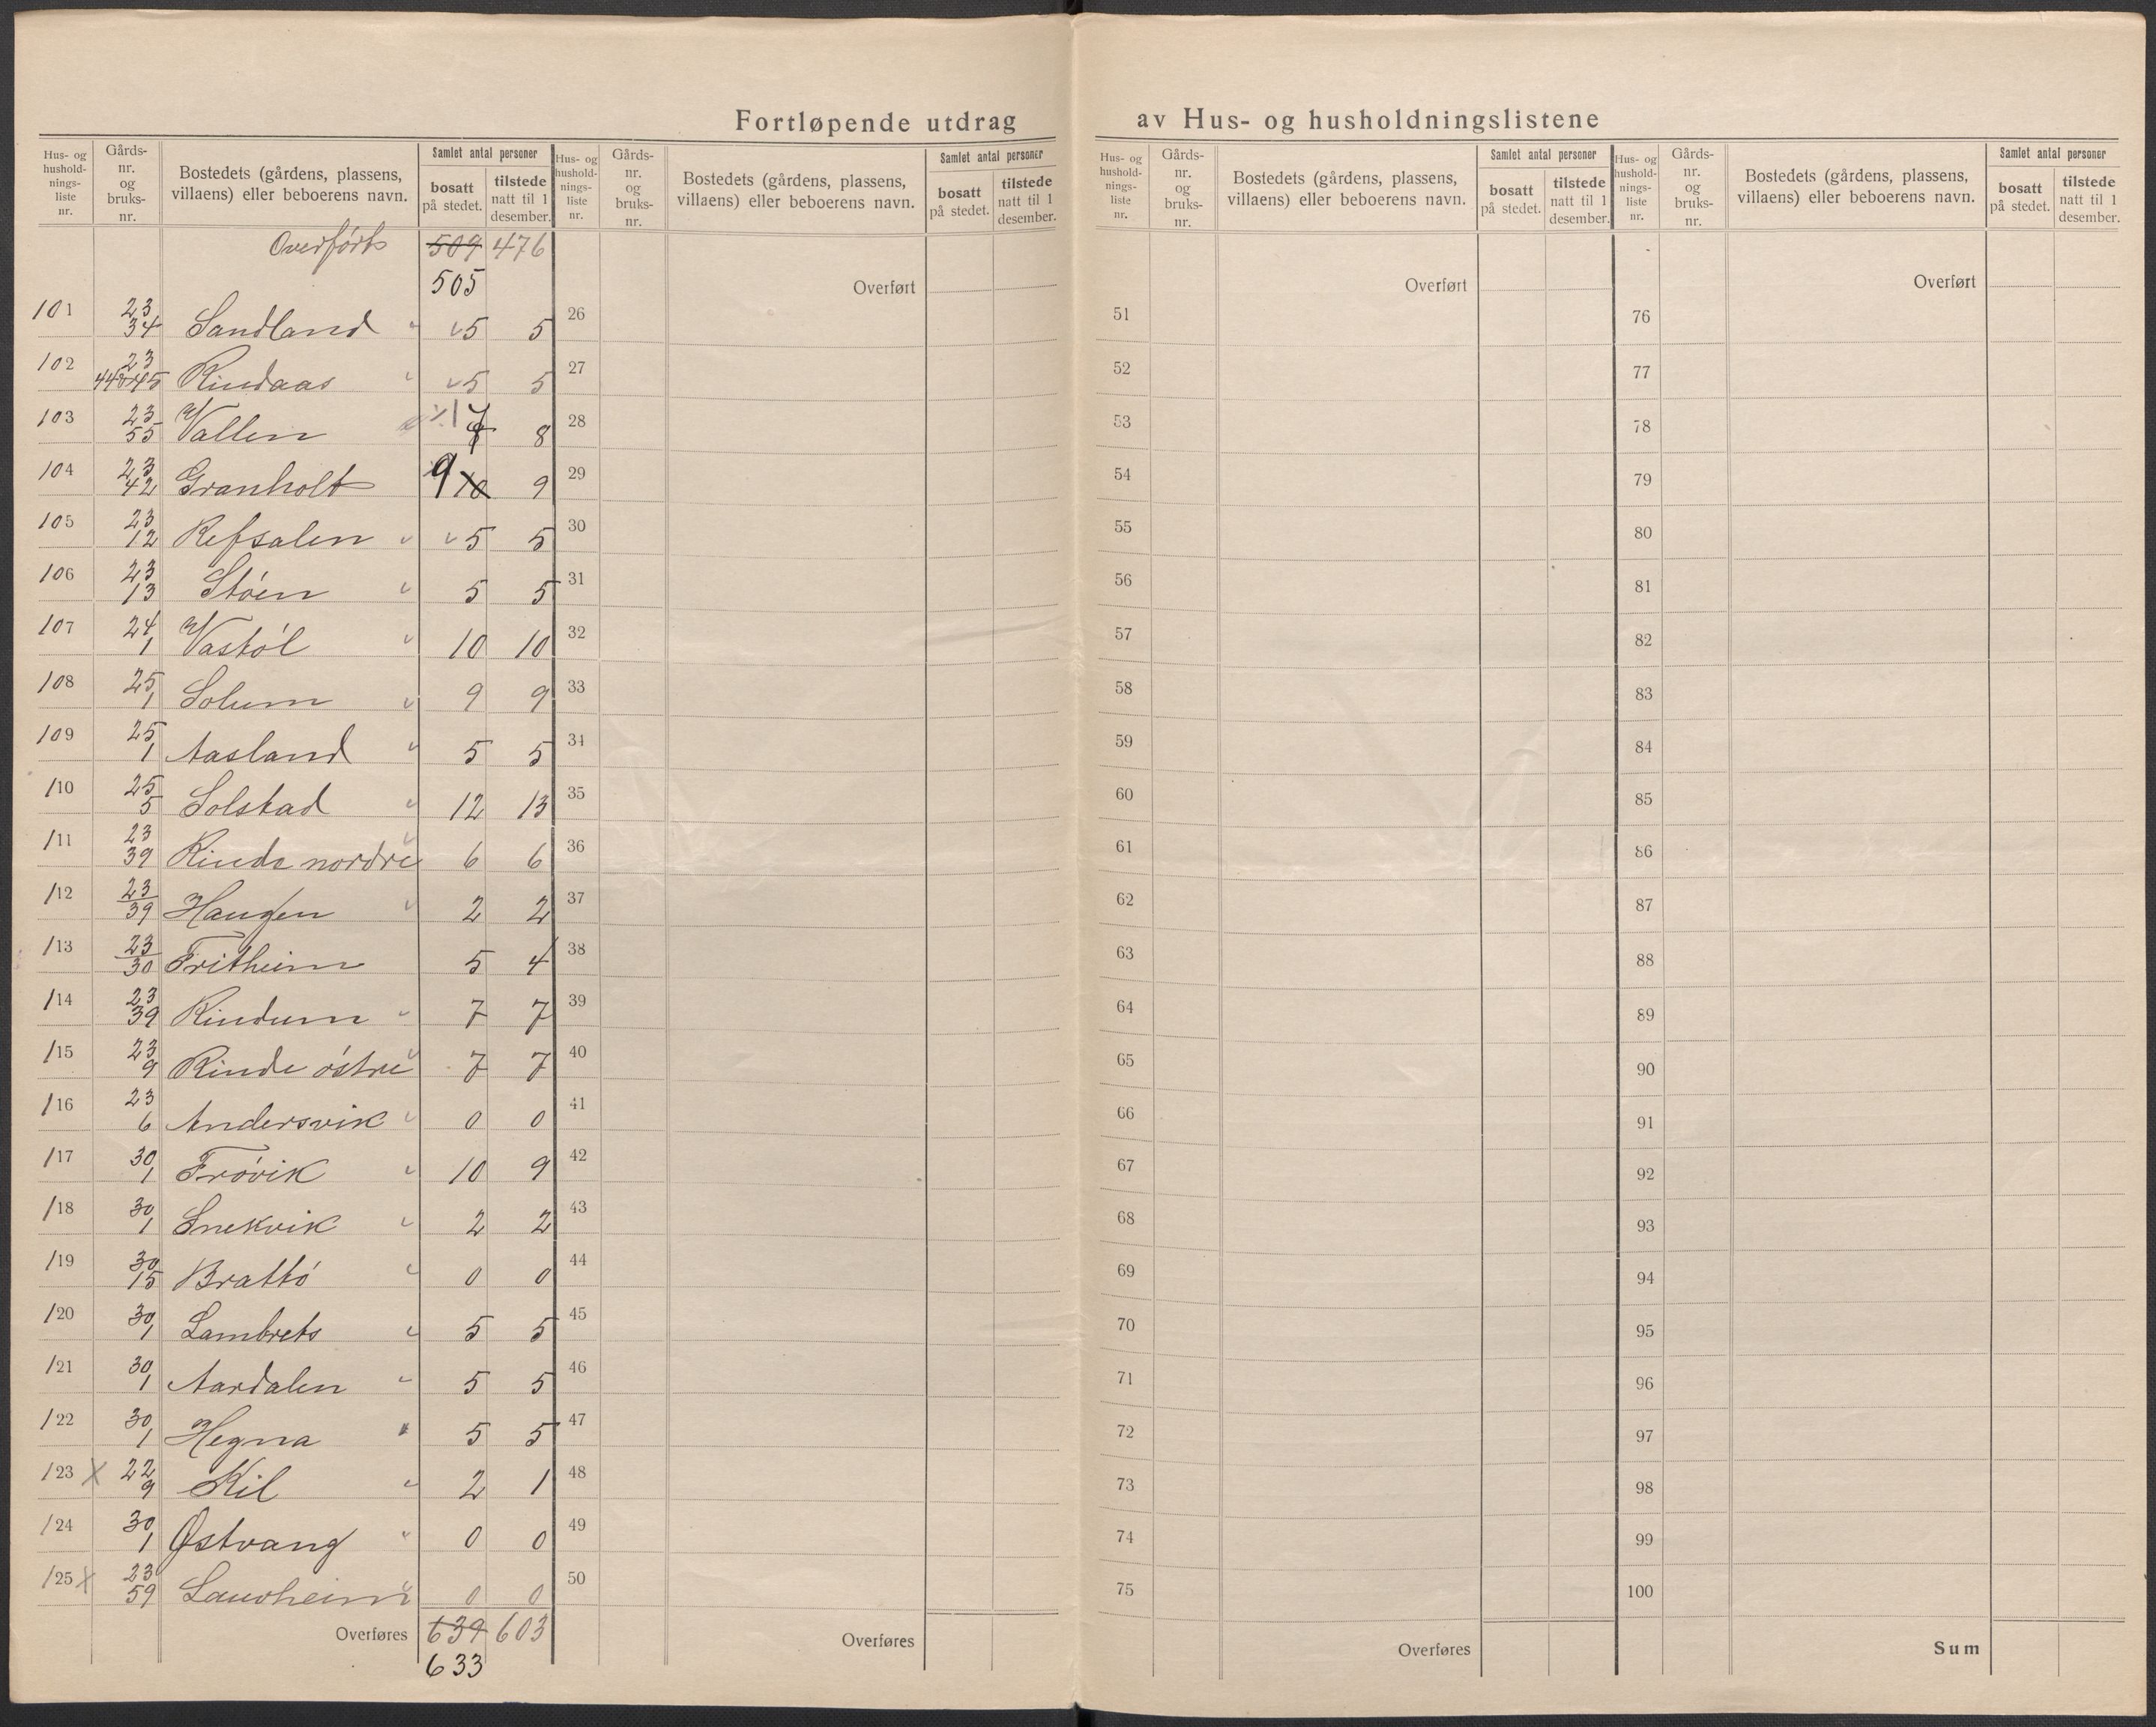 Fortløpende utdrag av Hus- og husholdningslistene
Hus- og hushold-nings-liste nr. Gårds-nr. og bruks-nr. Bostedets (gårdens, plassens, villaens) eller beboerens navn. Samlet antal personer bosatt på stedet. tilstede natt til 1 desember.
Hus- og hushold-nings-liste nr. Gårds-nr. og bruks-nr. Bostedets (gårdens, plassens, villaens) eller beboerens navn. Samlet antal personer bosatt på stedet. tilstede natt til 1 desember.
Hus- og hushold-nings-liste nr. Gårds-nr. og bruks-nr. Bostedets (gårdens, plassens, villaens) eller beboerens navn. Samlet antal personer bosatt på stedet. tilstede natt til 1 desember.
Hus- og hushold-nings-liste nr. Gårds-nr. og bruks-nr. Bostedets (gårdens, plassens, villaens) eller beboerens navn. Samlet antal personer bosatt på stedet. tilstede natt til 1 desember.
Overført 509 476
505
101 23/34 Sandland 5 5
102 23/44 og 45 Rindaas 5 5
103 23/55 Vallen 7 8
104 23/42 Granholt 9 10 9
105 23/12 Refsalen 5 5
106 23/13 Støen 5 5
107 24/1 Vastøl 10 10
108 25/1 Solum 9 9
109 25/1 Aasland 5 5
110 25/5 Solstad 12 13
111 23/39 Rinde nordre 6 6
112 23/39 Haugen 2 2
113 23/30 Fritheim 5 4
114 23/39 Rindum 7 7
115 23/9 Rinde østre 7 7
116 23/6 Andersvik 0 0
117 30/1 Frøvik 10 9
118 30/1 Snekvik 2 2
119 30/15 Brattø 0 0
120 30/1 Lambrets 5 5
121 30/1 Aardalen 5 5
122 30/1 Hegna 5 5
123 X 22/9 Kil 2 1
124 30/1 Østvang 0 0
125 X 23/59 Laurheim 0 0
Overføres 639 603
633
Overført
26
27
28
29
30
31
32
33
34
35
36
37
38
39
40
41
42
43
44
45
46
47
48
49
50
Overføres
Overført
51
52
53
54
55
56
57
58
59
60
61
62
63
64
65
66
67
68
69
70
71
72
73
74
75
Overføres
Overført
76
77
78
79
80
81
82
83
84
85
86
87
88
89
90
91
92
93
94
95
96
97
98
99
100
Sum